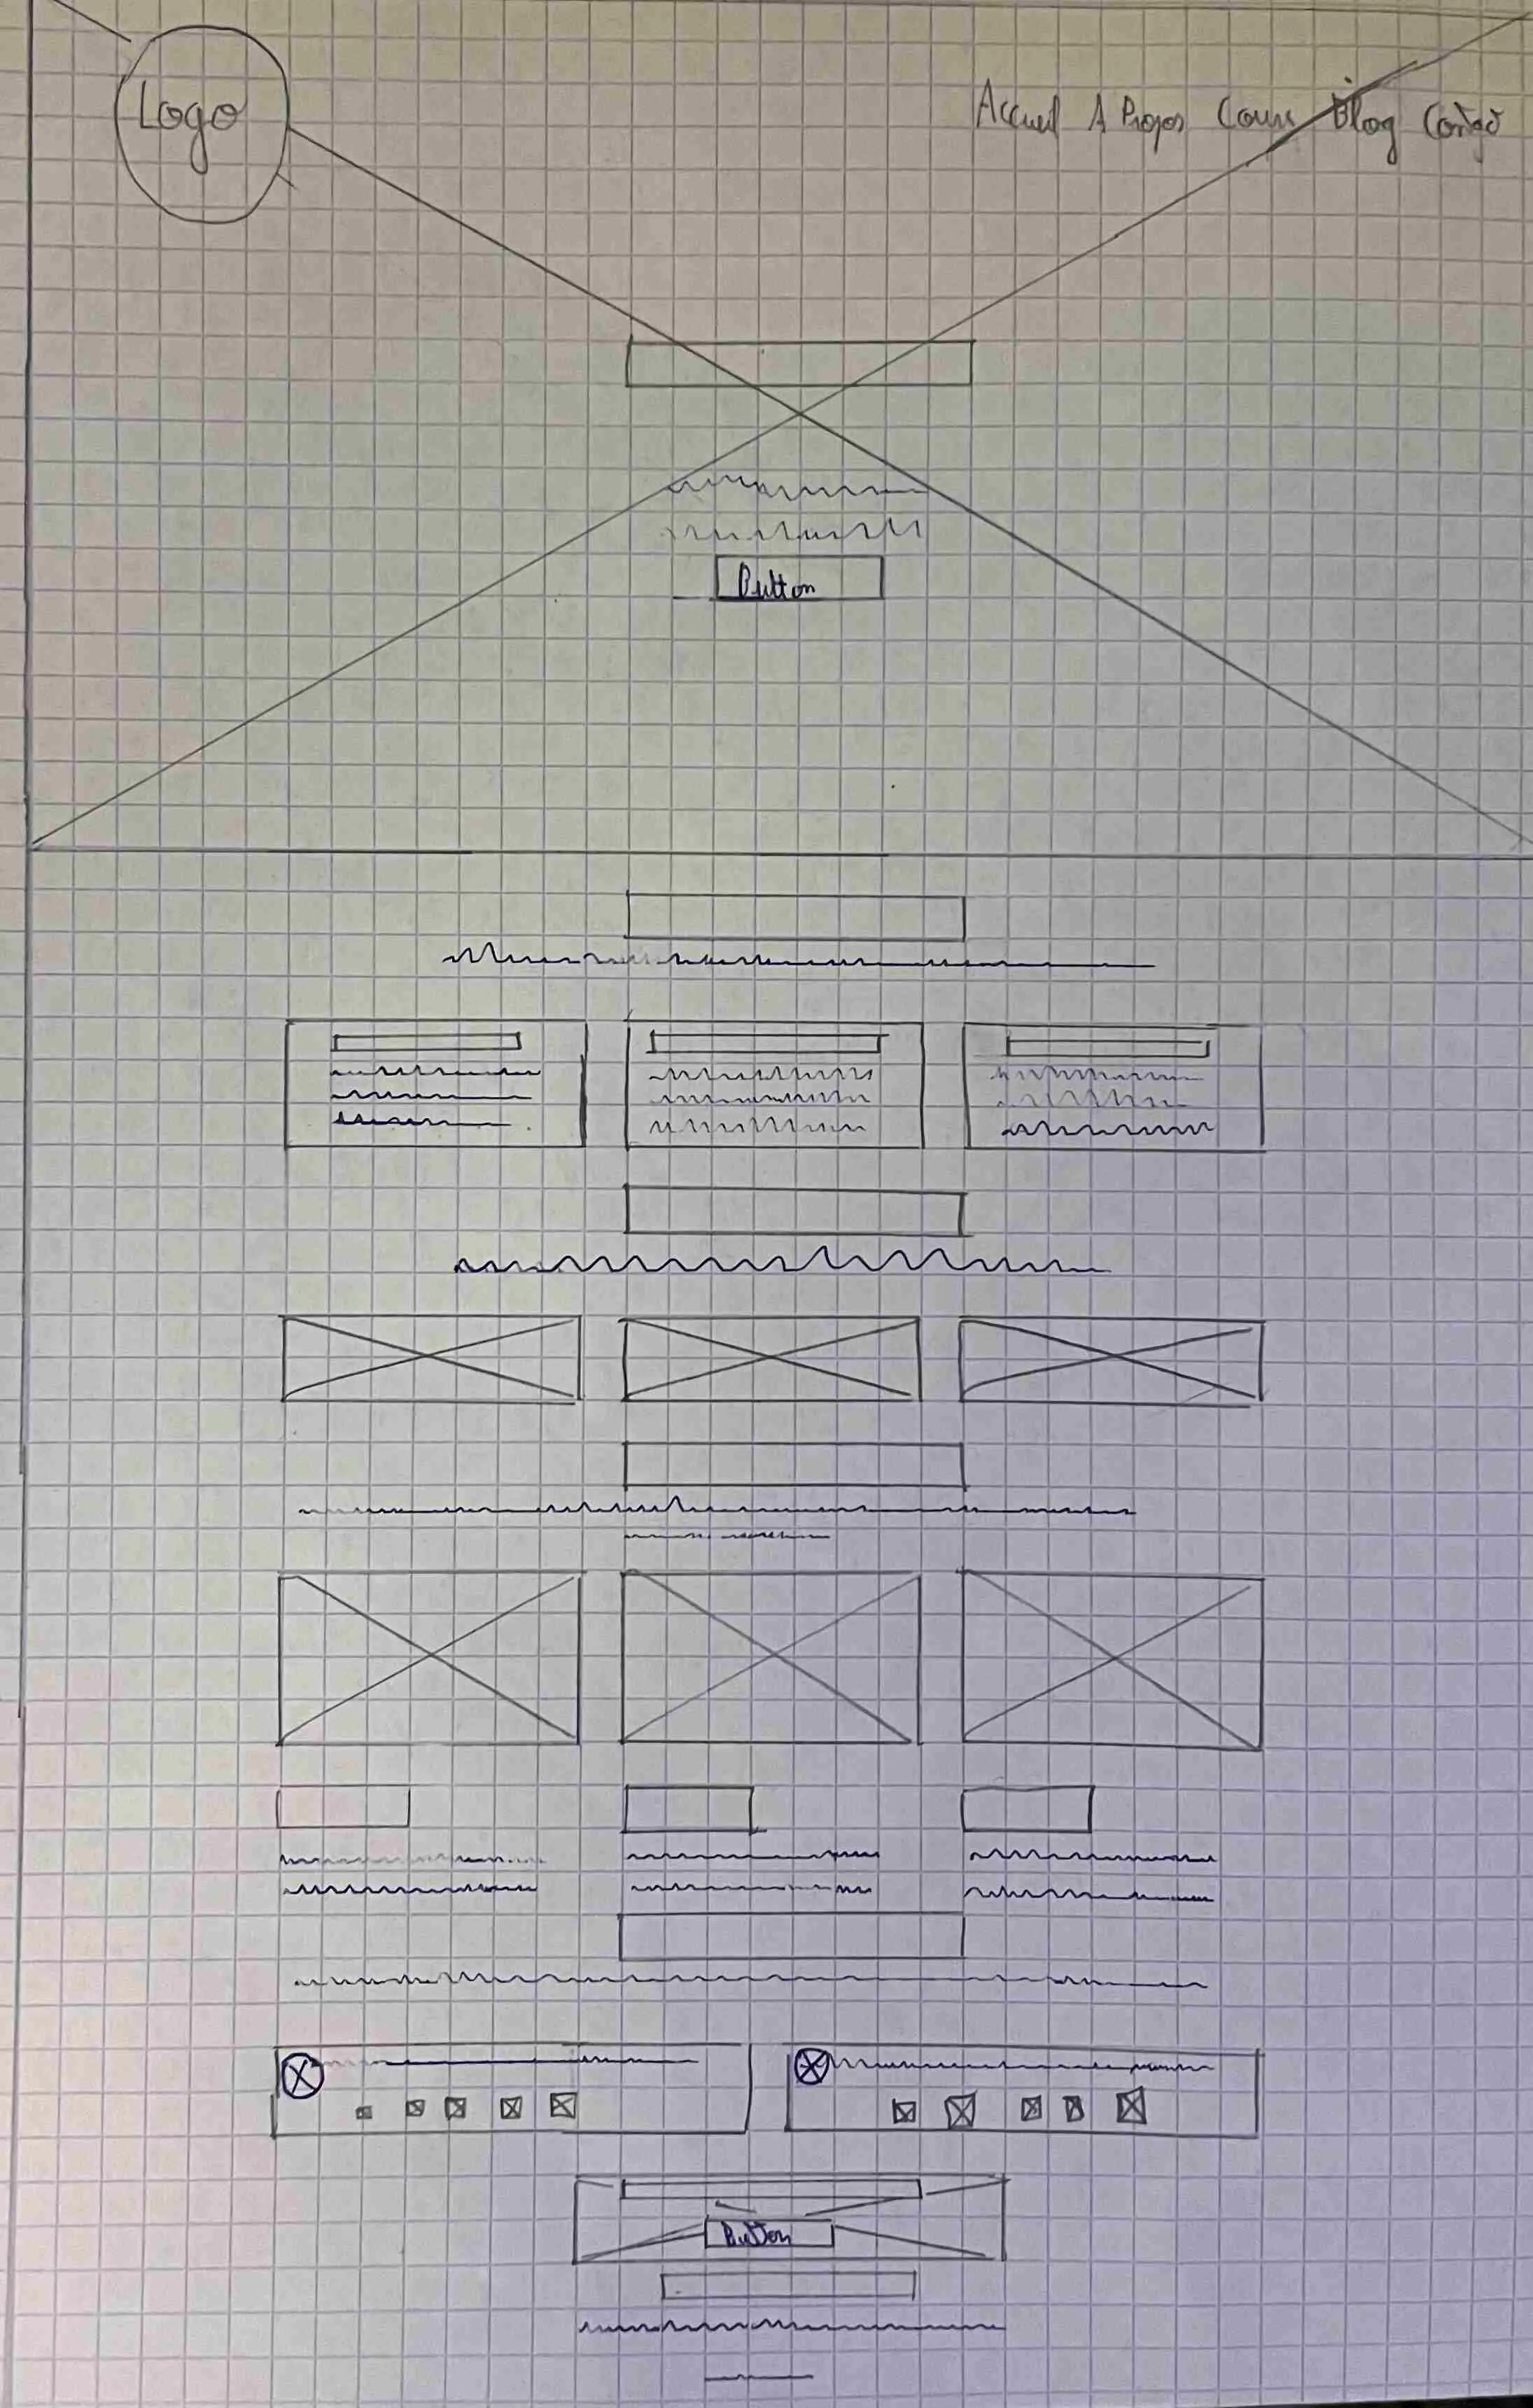 Logo
Accueil A Propos Cours Blog
Button
Button